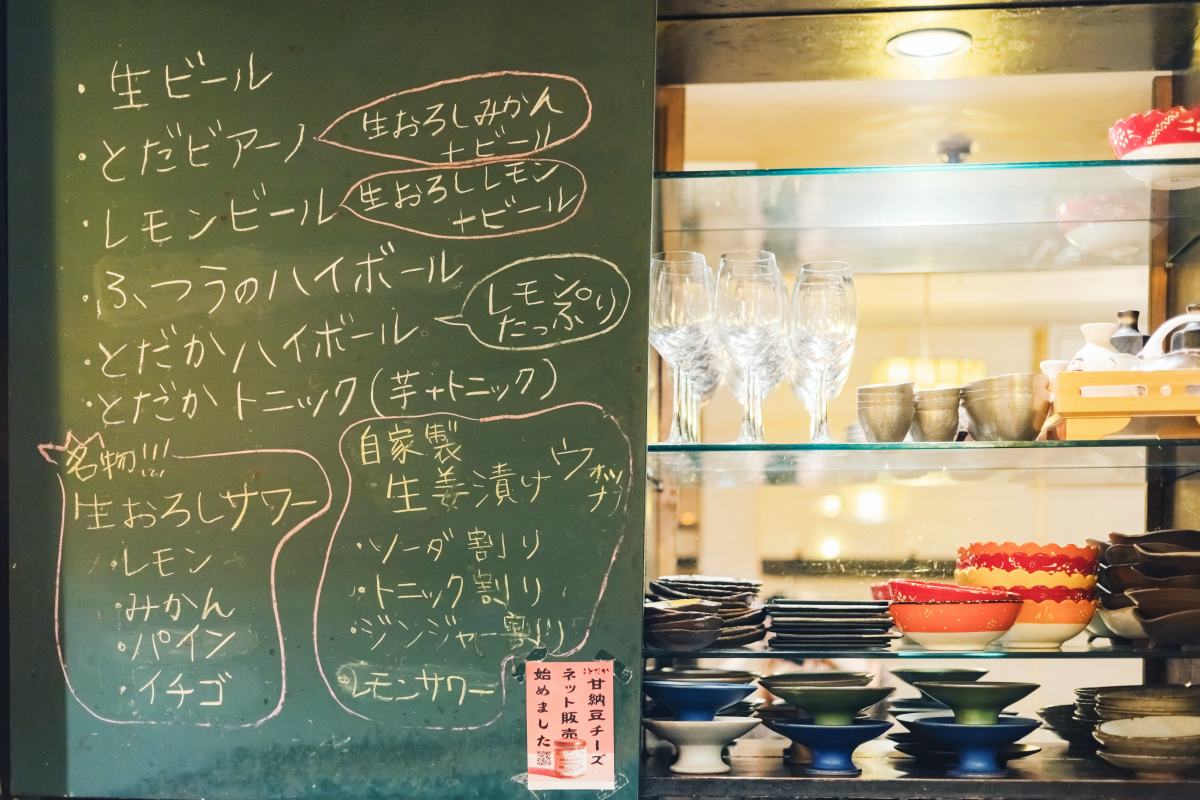 ・生ビール
・とだビアーノ
生おろしみかん
+ビール
・レモンビール
生おろしレモン
+ビール
・ふつうのハイボール
・とだかハイボール
レモン
たっぷり
・とだかトニック(芋+トニック)
名物!!!
生おろしサワー
・レモン
・みかん
・パイン
・イチゴ
自家製
生姜漬けウォッカ
・ソーダ割り
・トニック割り
・ジンジャー割り
レモンサワー
とだか
甘納豆チーズ
ネット販売
始めました